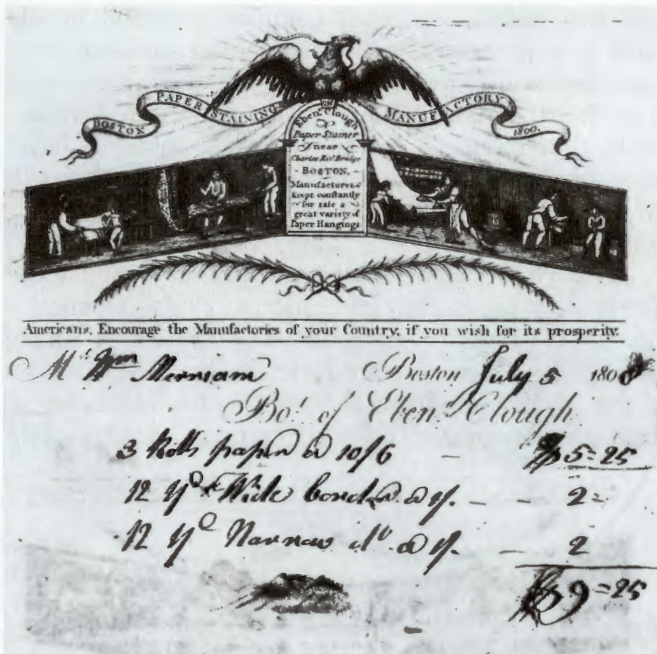 BOSTON PAPER STAINING MANUFACTORY 1800.
Eben.r Clough
Paper Stainer
near
Charles Riv.r Bridge
BOSTON,
Manufactures &
keeps constantly
for sale a
great variety of
Paper Hangings
Americans, Encourage the Manufactories of your Country, if you wish for its prosperity.
Mr. Wm Merriam Boston July 5 1800
Bo.t of Eben.r Clough
3 Rolls paper a 10/6 — $5=25
12 Yd Wide border a 1/. — — 2=
12 Yd Narrow do a 1/. — 2
$9=25